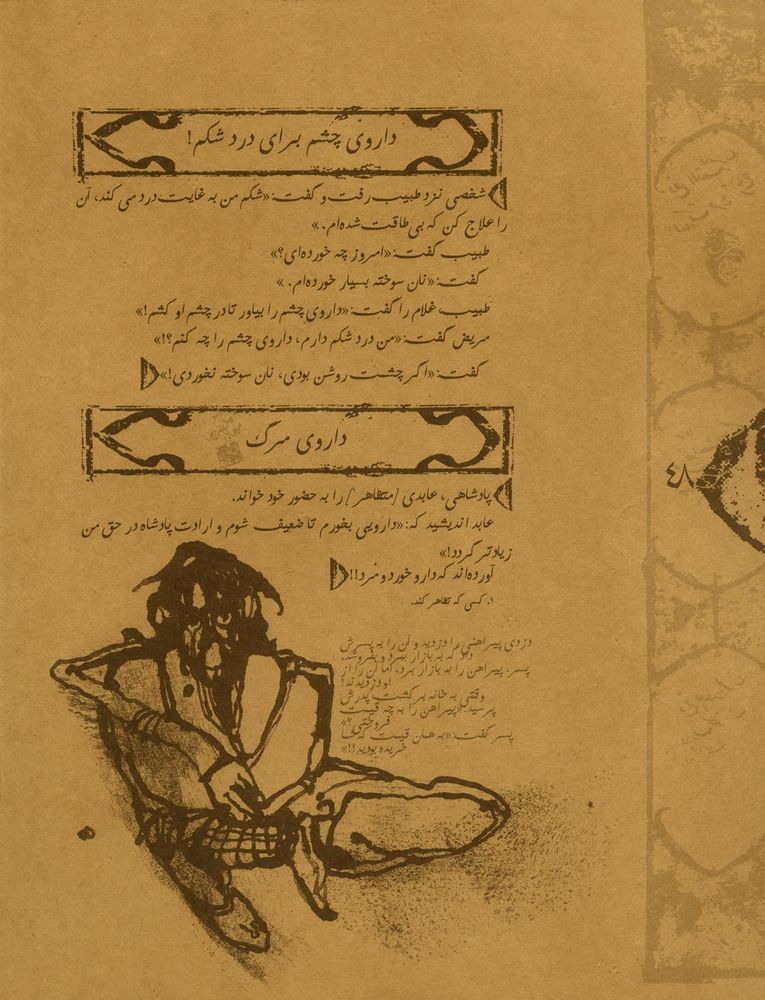 داروی چشم برای درد شکم!
شخصی نزد طبیب رفت و گفت: «شکم من به غایت درد می کند، آن
را علاج کن که بی طاقت شده‌ام.»
طبیب گفت: «امروز چه خورده‌ای؟»
گفت: «نان سوخته بسیار خورده‌ام.»
طبیب، غلام را گفت: «داروی چشم را بیاور تا در چشم او کشم!»
مریض گفت: «من درد شکم دارم، داروی چشم را چه کنم؟!»
گفت: «اگر چشمت روشن بودی، نان سوخته نخوردی!»
داروی مرگ
پادشاهی، عابدی [متظاهر] را به حضور خود خواند.
عابد اندیشید که: «دارویی بخورم تا ضعیف شوم و ارادت پادشاه در حق من
زیادتر گردد!»
آورده‌اند که دارو خورد و مُرد!!
۱. کسی که تظاهر کند.
دزدی پیراهنی را دزدید و آن را به پسرش
داد که به بازار ببرد و بفروشد.
پسر، پیراهن را به بازار برد، اما آن را از
او دزدیدند!
وقتی به خانه برگشت، پدرش
پرسید: «پیراهن را به چه قیمت
فروختی؟»
پسر گفت: «به همان قیمت که شما
خریده بودید!!»
۴۸